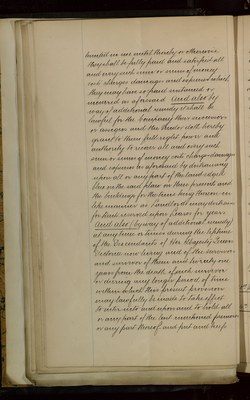 vested in us until thereby or otherwise
they shall be fully paid and satisfied all
and every such sum or sums of money
cost charges damages and expenses which
they may bear or expend sustained or
incurred as aforesaid And also by
way of additional remedy it shall be
lawful for the Company their successors
or assigns and the Vendor doth hereby
grant to them full right power and
authority to recover all and every such
sum or sums of money costs charges damages
and expenses as aforesaid by distraining
upon all or any part of the land
the said place in these presents and
the buildings for the time being thereon in
like manner as Landlords may distrain
for Rent reserved upon Leases for years
And also (by way of additional remedy)
at any time or times during the lifetime
of the Descendants of Her Majesty Queen
Victoria now living and of the survivors
and survivor of them and twenty one
years from the death of such survivor
or during any longer period of time
within which this present provision
may lawfully be made to take effect
to enter into and upon and to hold all
or any part of the last mentioned premises
or any part thereof and put and keep